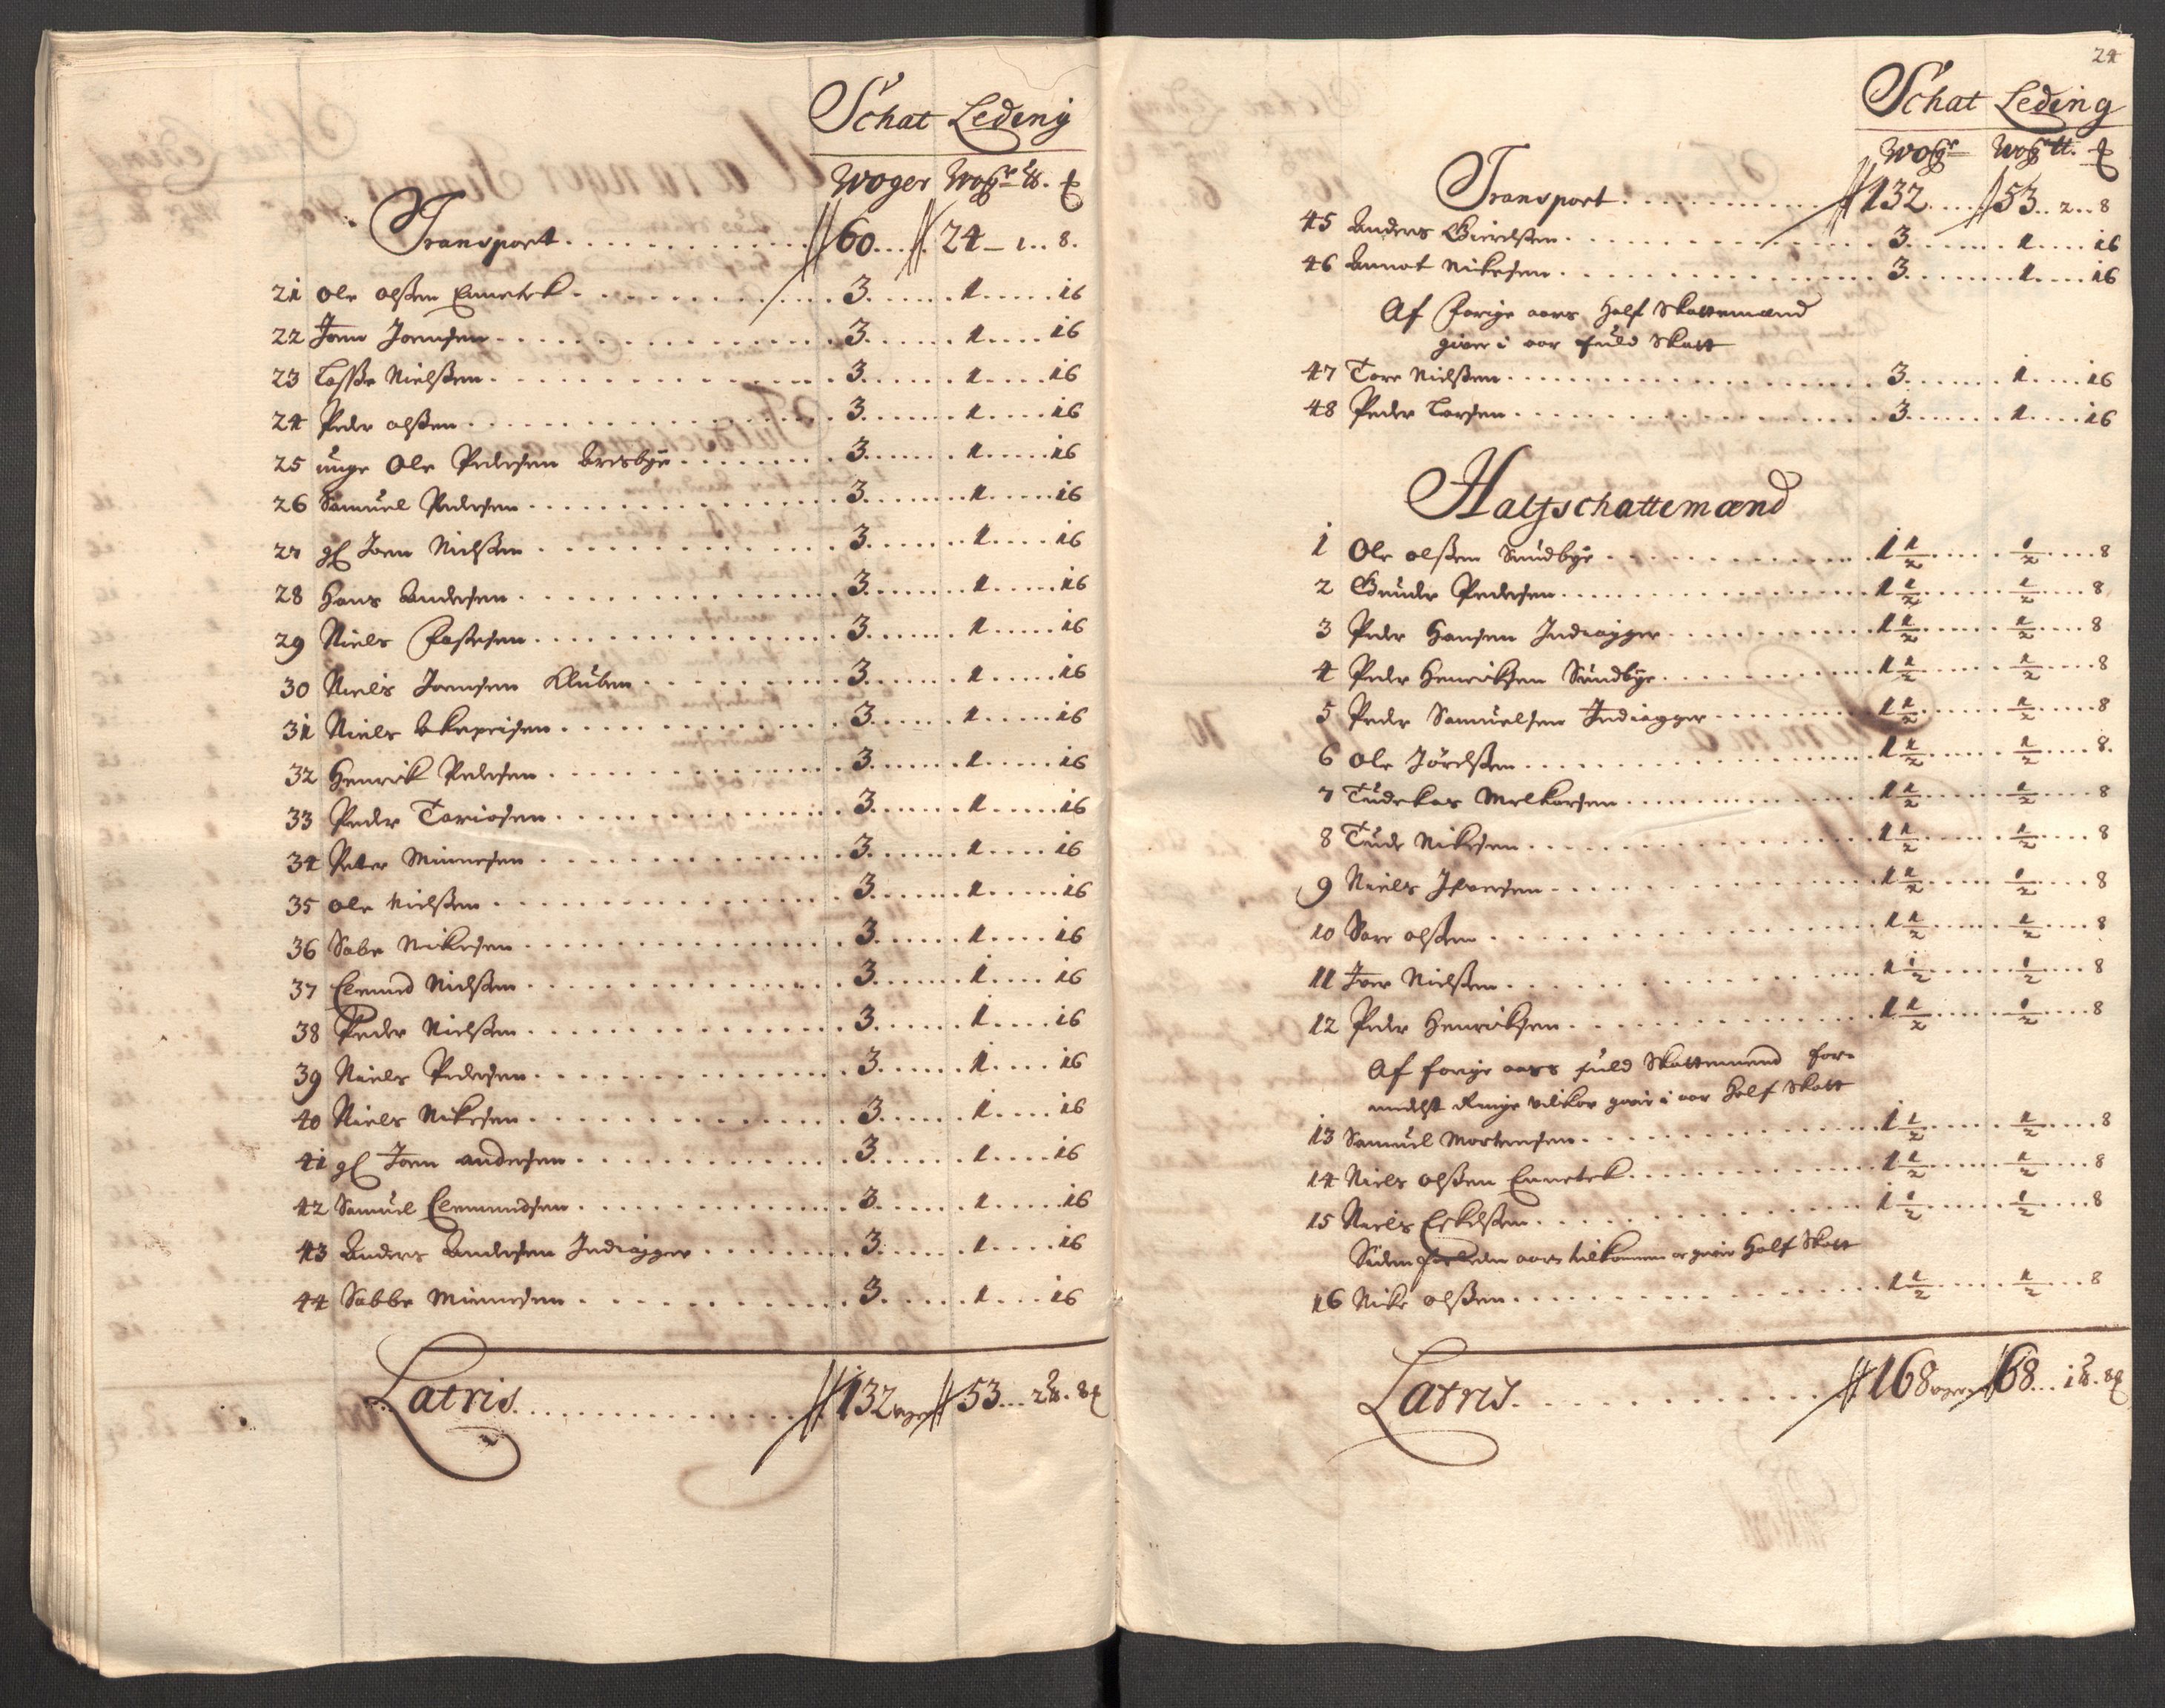 Schat Leding
Woger Wogr ℔.
Transport. 60. 24 – 1. 8.
21 Ole olßen Ennetek. 3. 1. 16
22 Joen Joensen. 3. 1. 16
23 Laße Nielßen. 3. 1. 16
24 Peder olßen. 3. 1. 16
25 unge Ole Pedersen Aresbye. 3. 1. 16
26 Samuel Pedersen. 3. 1. 16
27 gl Joen Nielßen. 3. 1. 16
28 Hans Andersen. 3. 1. 16
29 Niels Faßesen. 3. 1. 16
30 Niels Joensen Kluben. 3. 1. 16
31 Niels 3. 1. 16
32 Henrick Pedersen. 3. 1. 16
33 Peder Tariosen. 3. 1. 16
34 Peter Minnesen. 3. 1. 16
35 ole Nielßen. 3. 1. 16
36 Sabe Nikesen. 3. 1. 16
37 Clemmed Nielßen. 3. 1. 16
38 Peder Nielßen. 3. 1. 16
39 Niels Pedersen. 3. 1. 16
40 Niels Nikesen. 3. 1. 16
41 gl Joen andersen. 3. 1. 16
42 Samuel Clemmedsen. 3. 1. 16
43 Anders Andersen Indiagger. 3. 1. 16
44 Sabbe Minnesen. 3. 1. 16
Latris. 132 woger 53. 2 ℔. 8
24
Schat Leding
Wogr Wogr ℔.
Transport. 132. 53. 2. 8
45 Anders Gierdßen. 3. 1. 16
46 Annot Nikesen. 3. 1. 16
Af Forige aars Half Skattemænd
giver i aar fuld Skatt
47 Tore Nielßen. 3. 1. 16
48 Peder Larsen. 3. 1. 16
Halfschattemænd
1 Ole olßen Sundbye. 1 1/2. 1/2. 8
2 Gunder Pedersen. 1 1/2. 1/2. 8
3 Peder Hansen Indiagger. 1 1/2. 1/2. 8
4 Peder Henriksen Sundbye. 1 1/2. 1/2. 8
5 Peder Samuelsen Indiagger. 1 1/2. 1/2. 8
6 Ole Jörelßen. 1 1/2. 1/2. 8.
7 Tudekas Melkersen. 1 1/2. 1/2. 8
8 Tude Nikesen. 1 1/2. 1/2. 8
9 Niels Ifversen. 1 1/2. 1/2. 8
10 Sare olßen. 1 1/2. 1/2. 8
11 Iver Nielßen. 1 1/2. 1/2. 8
12 Peder Henriksen. 1 1/2. 1/2. 8
Af forige aars fuld Skattemend for-
medelst Ringe vilkor giver i aar Half Skatt
13 Samuel Mortensen. 1 1/2. 1/2. 8
14 Niels olßen Ennetek. 1 1/2. 1/2. 8
15 Niels Eskelßen. 1 1/2. 1/2. 8
Siden forleden aars tilkommen og giver Half Skatt
16 Nike olßen. 1 1/2. 1/2. 8
Latris. 168 woger 68. 1 ℔. 8